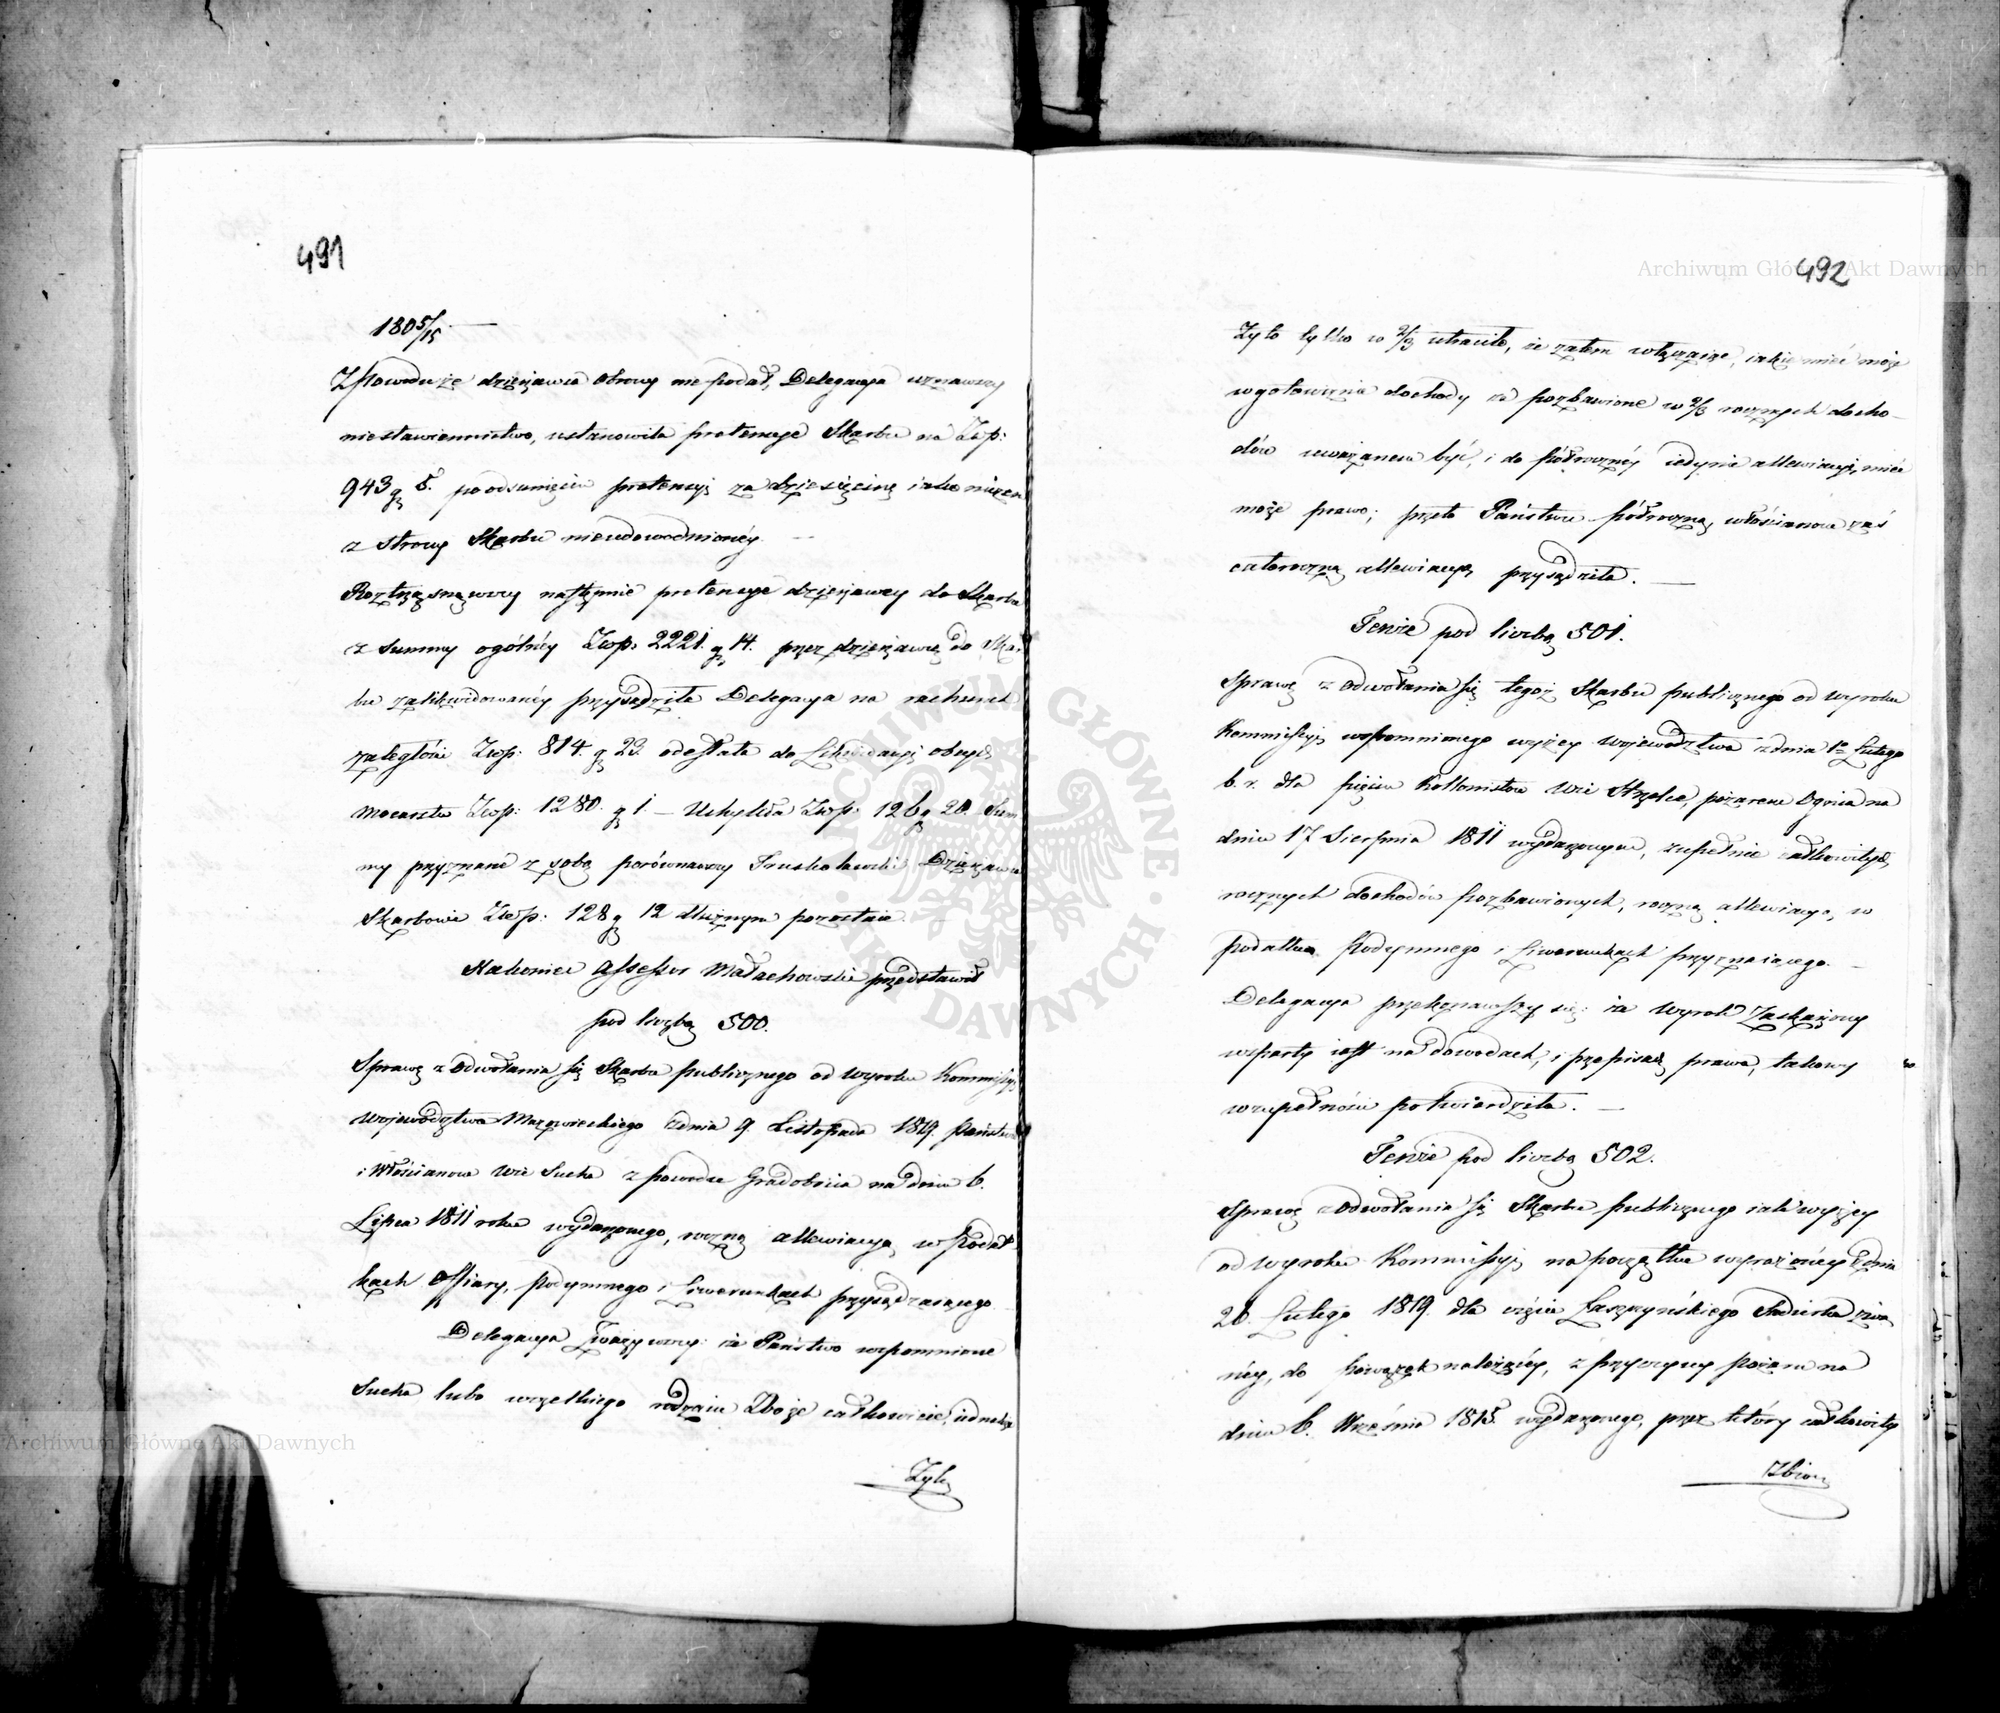 491
1805/15
Z powodu że dzierżawca obrony nie podał, Delegacya uznawszy
niestawiennictwo, ustanowiła pretensye Skarbu na Złp:
943 g 8. po odsunięciu pretensyi za dziesięcinę jako niczem
z strony Skarbu nieudowodnioney. —
Roztrząsnąwszy następnie pretensye dzierżawcy do Skarbu
z summy ogólney Złwp: 2221. g 14. przez dzierżawcę do Skar
bu zalikwidowaney przysądziła Delegacya na rachunek
zaległości Złwp: 814. g 23. odesłała do Likwidacyi obcych
Mocarstw Złwp: 1280. g 1. — Uchyliła Złwp: 126 g 20. Sum
my przyznane z sobą porównawszy Truskolawski Dzierżawca
Skarbowi Złwp: 128 g 12 dłużnym pozostaie.
Nakoniec Assessor Małachowski przedstawił
pod liczbą 500.
Sprawę z odwołania się Skarbu publicznego od wyroku Kommissyi
Województwa Mazowieckiego z dnia 9. Listopada 1819. Państwu
i Włościanom wsi Sucha z powodu Gradobicia na dniu 6.
Lipca 1811 roku wydarzonego, roczną allewiacyą w Podat
kach Offiary, podymnego i Liwerunkach przysądzaiącego
Delegacya zważywszy: że Państwo wspomnione
Sucha lubo wszelkiego rodzaiu Zboże całkowicie, iednakże
Żyto
492
Żyto tylko w 2/3 utraciło, że zatem włączaiąc, iakie mieć może
w gotowiźnie dochody za pozbawione w 2/3 rocznych docho-
dów uważanem być, i do półroczney iedynie allewiacyi, mieć
może prawo; przeto Państwu półroczną, włościanom zaś
całoroczną allewiacyą przysądziła. —
Tenże pod liczbą 501.
Sprawę z odwołania się tegoż Skarbu publicznego od wyroku
Kommissyi wspomnionego wyżey Województwa z dnia 12 Lutego
b. r. dla pięciu Kollonistów wsi Strzelce, pożarem Ognia na
dniu 17 Sierpnia 1811 wydarzonym, zupełnie całkowitych
rocznych dochodów pozbawionych, roczną allewiacyą, w
podatku Podymnego i Liwerunkach przyznaiącego. —
Delegacya przekonawszy się: że wyrok Zaskarżony
wsparty iest na dowodach, i przepisach prawa, takowy
w zupełności potwierdziła. —
Tenże pod liczbą 502.
Sprawę z odwołania się Skarbu publicznego iak wyżey
od wyroku Kommissyi na początku wyrażoney z dnia
26. Lutego 1819. dla części Łuszczyńskiego zwa
ney, do należącey, z przyczyny pożaru na
dniu 6. Września 1815. wydarzonego, przez który całkowity
Zbior
Archiwum Główne Akt Dawnych
Archiwum Główne Akt Dawnych
ARCHIWUM GŁÓWNE AKT DAWNYCH